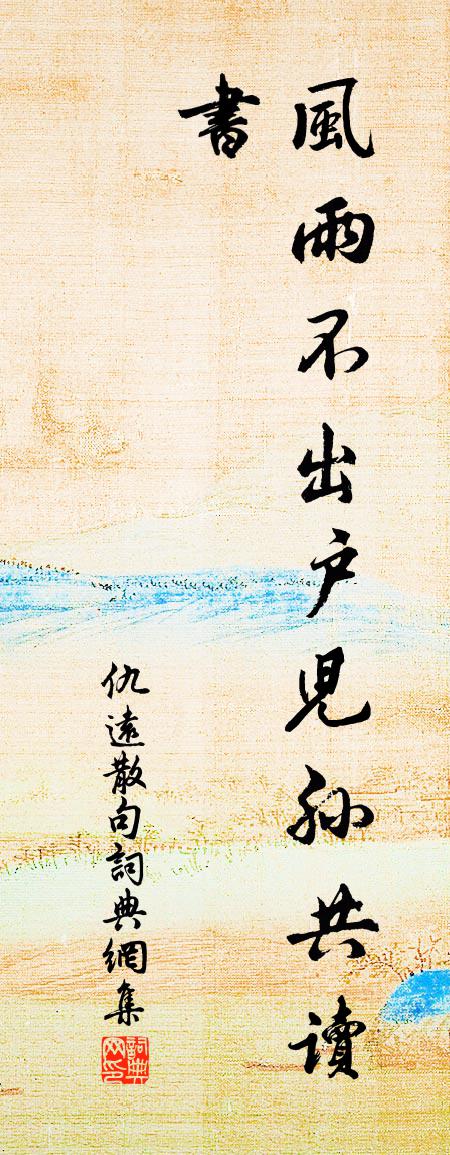 風雨不出户兒孫共讀
書
仇遠散句詞典網集
詞典网印